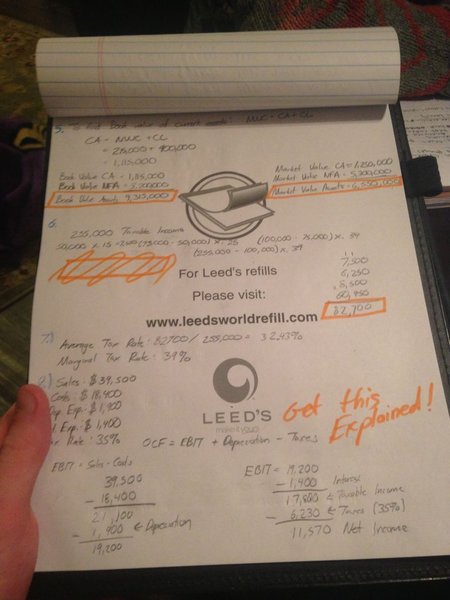 5. To find Book value of current assets: NWC = CA + CL
CA = NWC + CL
= 215,000 + 900,000
= 1,115,000
Book Value CA = 1,115,000
Book Value NFA =
Book Value Assets
Market Value CA = 1,250,000
Market Value NFA = 5,300,000
Market Value Assets = 6,550,000
6.
255,000 Taxable Income
50,000 x .15 = 7,500 (75,000 - 50,000) x .25 (100,000 - 75,000) x .34
(255,000 - 100,000) x .39
7,500
6,250
8,500
60,450
82,700
For Leed's refills
Please visit:
www.leedsworldrefill.com
7.) Average Tax Rate: 82700 / 255,000 = 32.43%
Marginal Tax Rate: 39%
8.) Sales: $39,500
Costs: $18,400
Exp: $1,900
Exp: $1,400
Rate: 35%
LEED'S
make it yours
Get this
Explained!
OCF = EBIT + Depreciation - Taxes
EBIT = Sales - Costs
39,500
- 18,400
21,100
- 1,900 ← Depreciation
19,200
EBIT = 19,200
- 1,400 Interest
17,800 ← Taxable Income
- 6,230 ← Taxes (35%)
11,570 Net Income